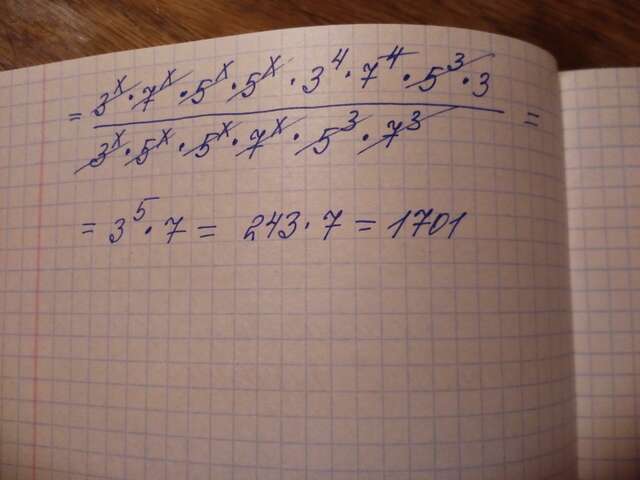 = 3^x · 7^x · 5^x · 5^x · 3^4 · 7^4 · 5^3 · 3
3^x · 5^x · 5^x · 7^x · 5^3 · 7^3 =
= 3^5 · 7 = 243 · 7 = 1701